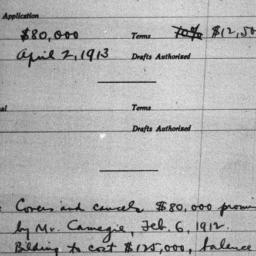 Application
$80,000 Terms 10% $12,50
April 2, 1913 Drafts Authorized
al Terms
Drafts Authorized
Covers and cancels $80,000 promi
by Mr. Carnegie, Feb. 6, 1912.
Bilding to cost $125,000, balance